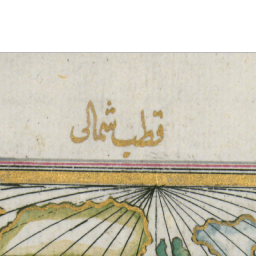 قطب شمالی